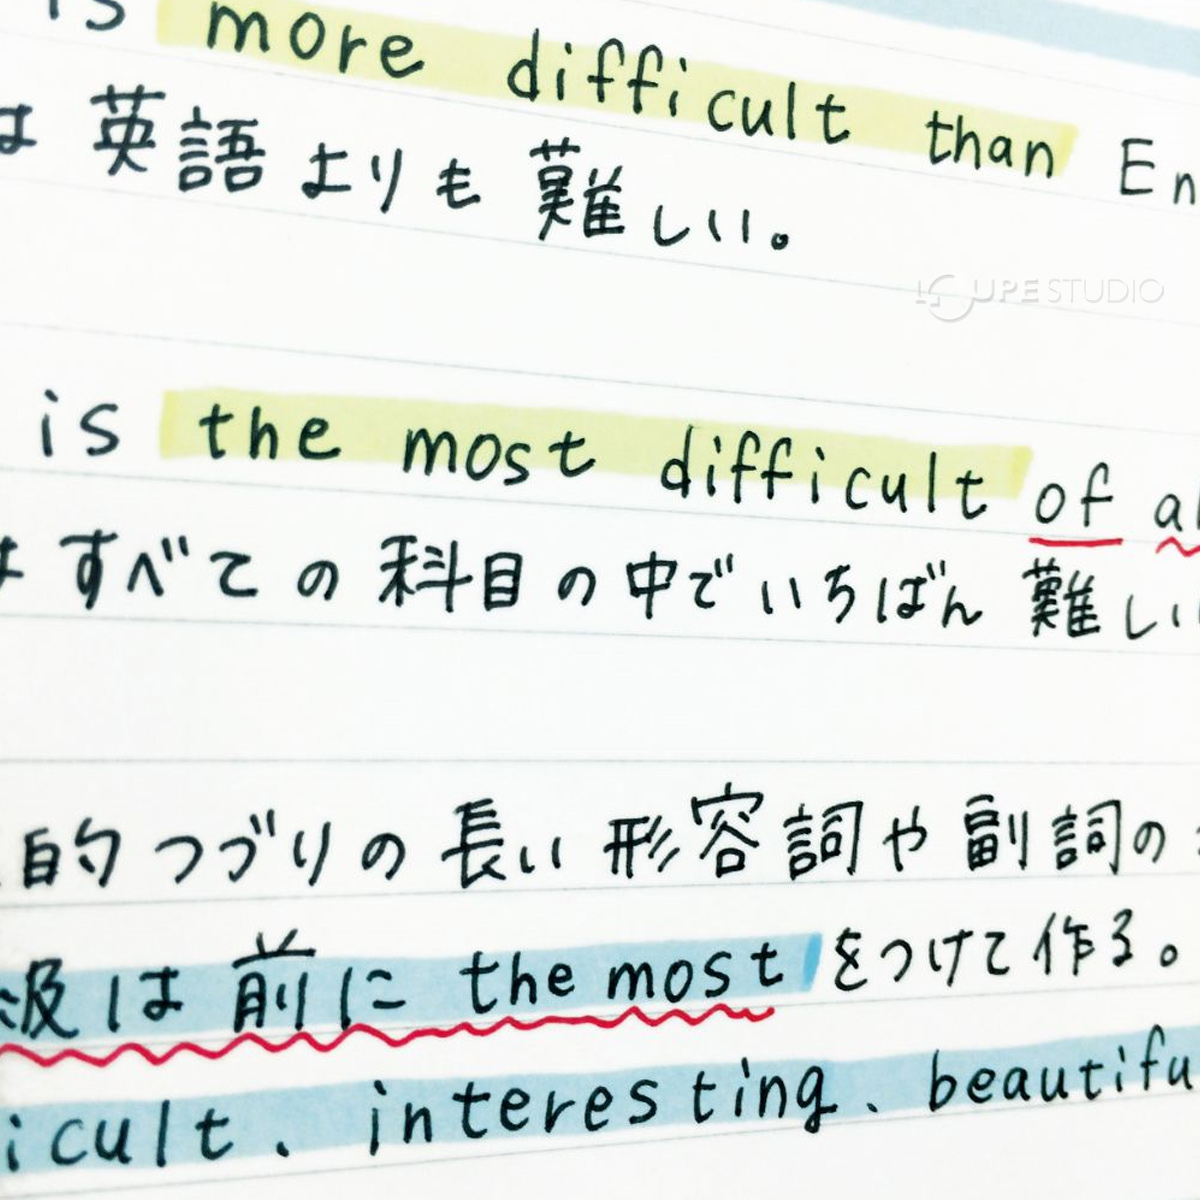 is more difficult than En
は 英語 よりも 難しい。
LOUPE STUDIO
is the most difficult of al
は すべての 科目の 中で いちばん 難しい
的つづりの 長い 形容詞や 副詞の
級は 前に the most をつけて 作る。
icult、interesting、beautifu